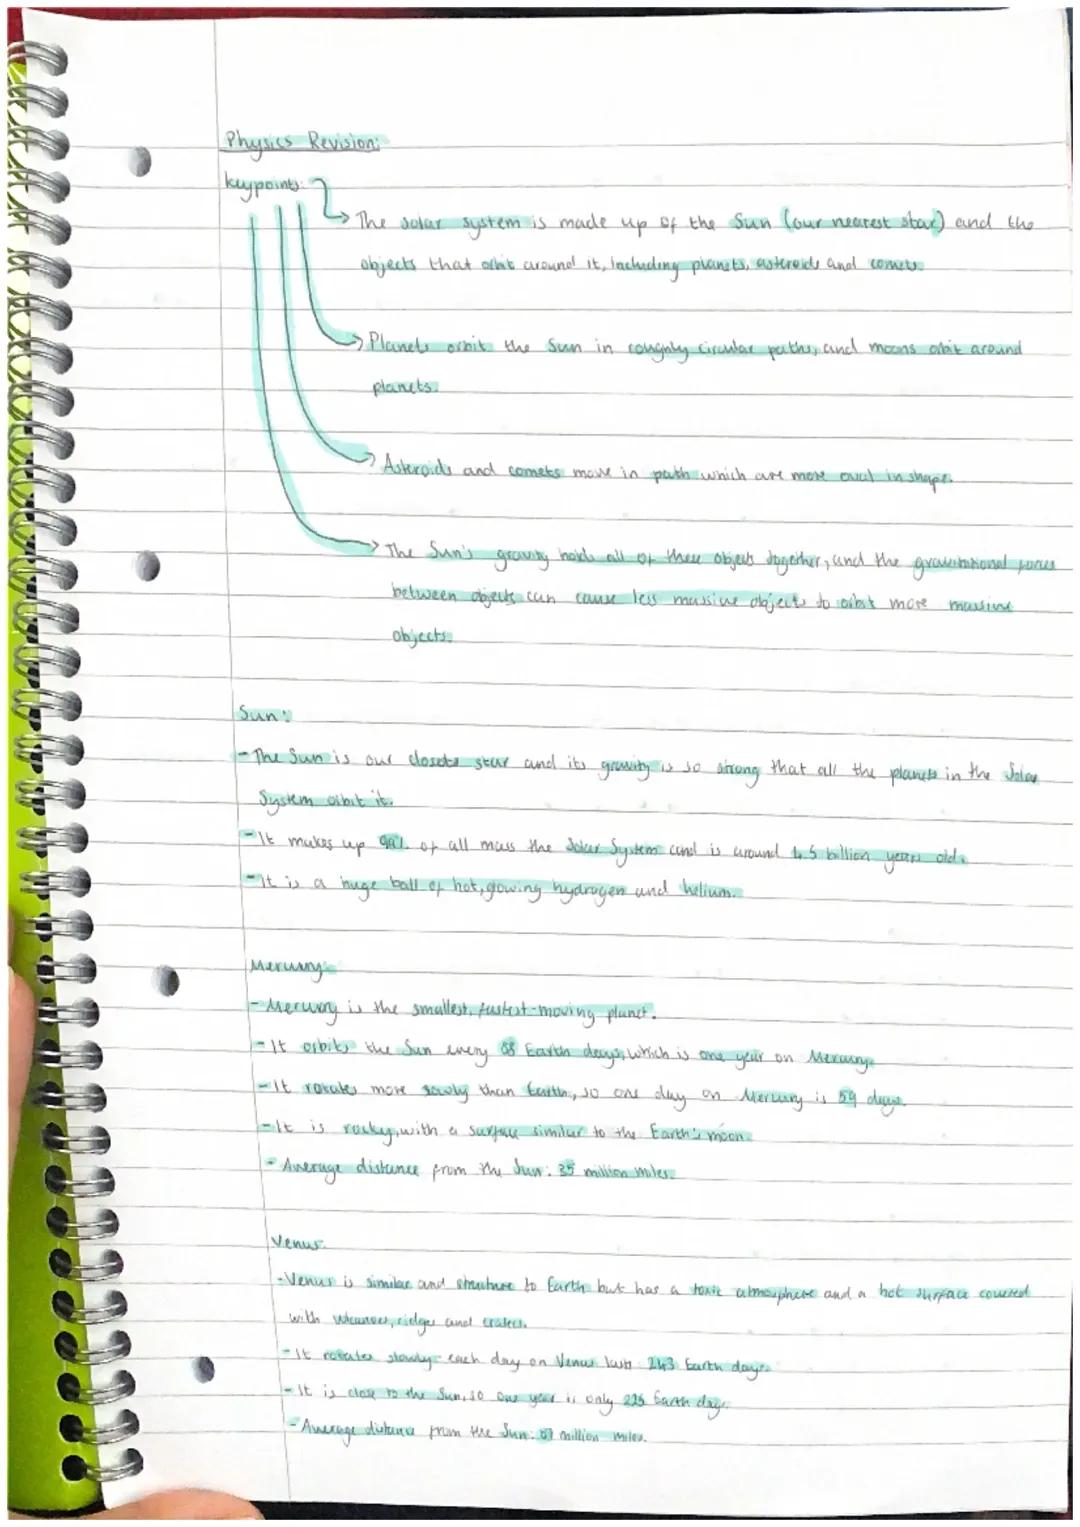 Physics Revision:
keypoints:
The solar system is made up of the Sun (our nearest star) and the
objects that orbit around it, including planets, asteroids and comets.
Planets orbit the Sun in roughly circular paths, and moons orbit around
planets.
Asteroids and comets move in path which are more oval in shape.
The Sun's gravity holds all of these objects together, and the gravitational forces
between objects can cause less massive objects to orbit more massive
objects.
Sun:
- The Sun is our closets star and its gravity is so strong that all the planets in the Solar
System orbit it.
- It makes up 99% of all mass the Solar System and is around 4.5 billion years old.
- It is a huge ball of hot, glowing hydrogen and helium.
Mercury:
- Mercury is the smallest, fastest-moving planet.
- It orbits the Sun every 88 Earth days, which is one year on Mercury.
- It rotates more slowly than Earth, so one day on Mercury is 59 days.
- It is rocky, with a surface similar to the Earth's moon.
- Average distance from the Sun: 35 million miles.
Venus:
- Venus is similar and structure to Earth but has a toxic atmosphere and a hot surface covered
with volcanoes, ridges and craters.
- It rotates slowly- each day on Venus lasts 243 Earth days.
- It is close to the Sun, so one year is only 225 Earth days.
- Average distance from the Sun: 67 million miles.